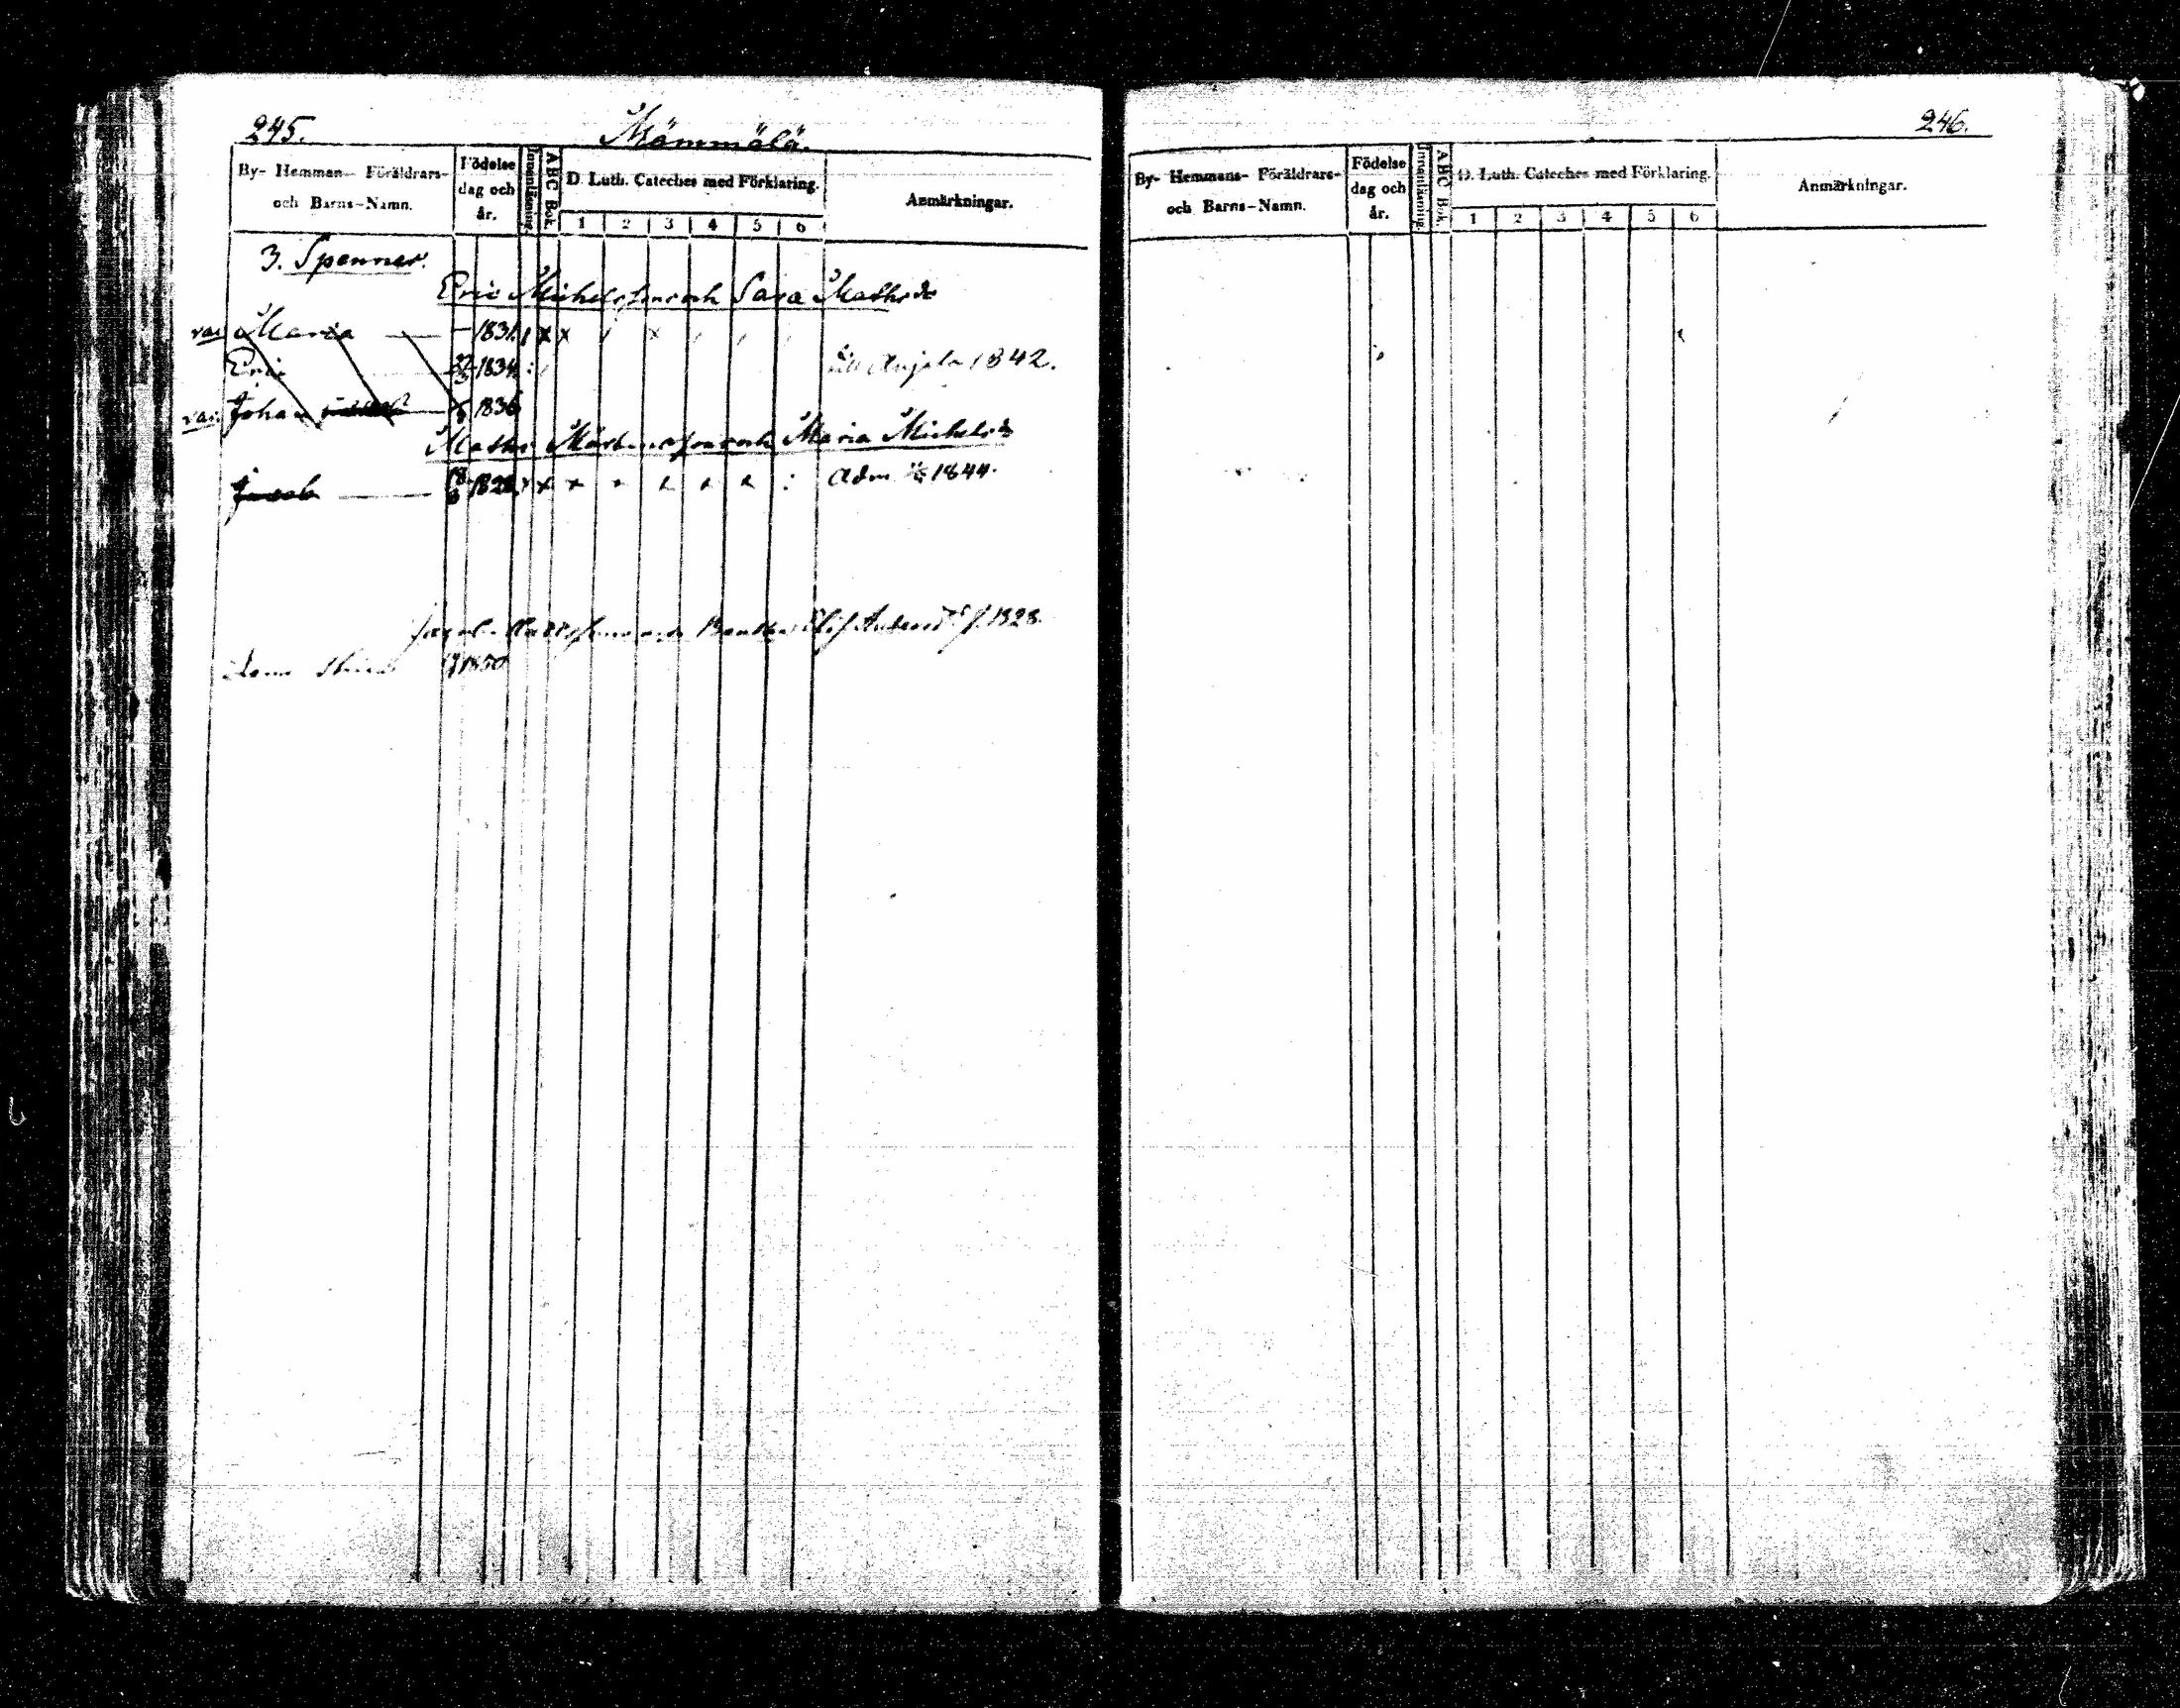 245.
Mämmälä.
By- Hemman- Föräldrars- och Barns-Namn.
Födelse dag och år.
Innanläsning.
ABC Bok.
D. Luth. Cateches med Förklaring.
1 2 3 4 5 6
Anmärkningar.
3. Spennar.
Eric Michelsson och Sara Mathsdr
vac. Maria — 1831. x x x
Eric 1834 till Anjala 1842.
vac. Johan 1836
Maths Mårtensson och Maria Michelsdr
Jacob 1828 x x x x x x x : Adm. 1844.
1828.
1850
246.
By- Hemmans- Föräldrars- och Barns-Namn.
Födelse dag och år.
Innanläsning.
ABC Bok.
D. Luth. Cateches med Förklaring.
1 2 3 4 5 6
Anmärkningar.